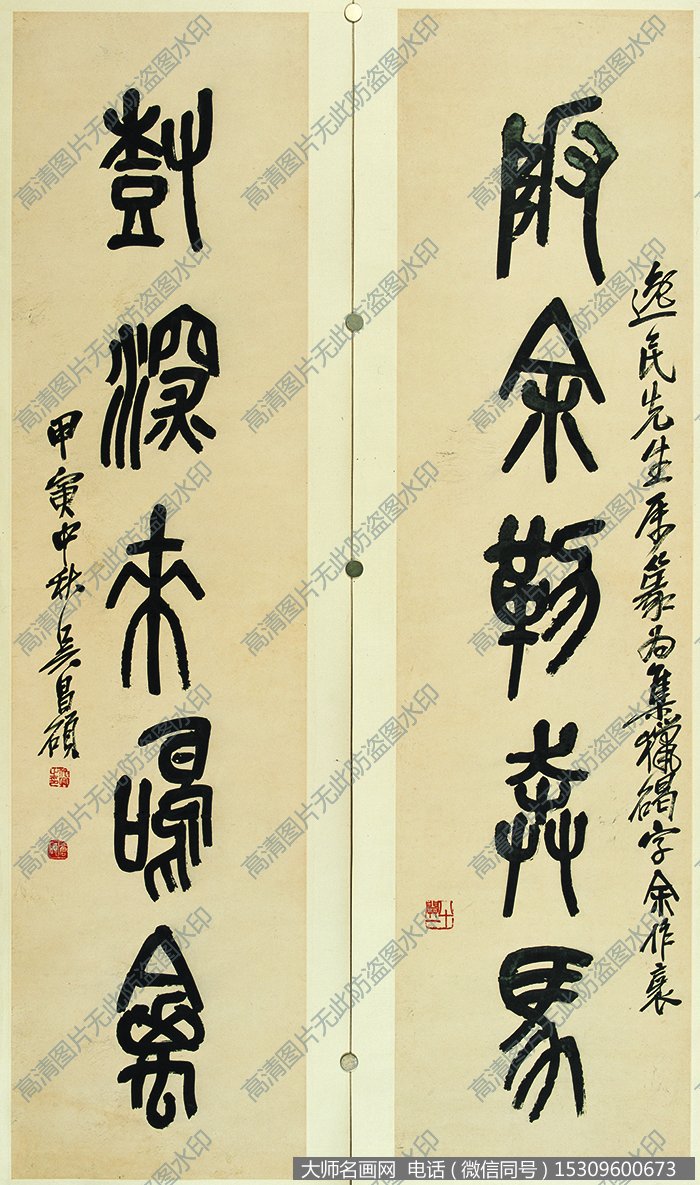 阪余勒奔馬
逸民先生属篆為集獵碣字余作衺
尌深來鳴禽
甲寅中秋吴昌碩
高清图片无此防盗图水印
大师名画网 电话（微信同号）15309600673